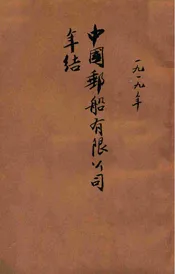 一九一九年
中國郵船有限公司
年结